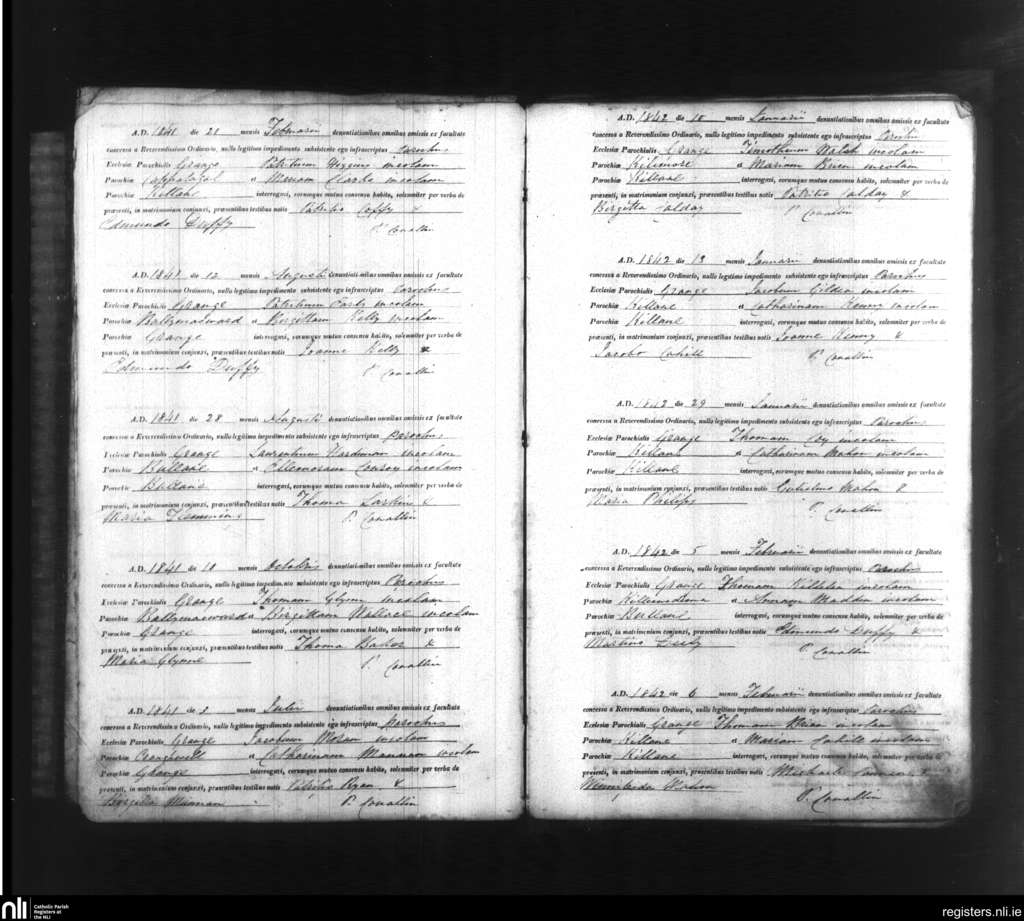 A.D. 1841 die 21 mensis Februarii denuntiationibus omnibus omissis ex facultate
concessa a Reverendissimo Ordinario, nullo legitimo impedimento subsistente ego infrascriptus Parochus
Ecclesiæ Parochialis Grange Patritium Higgins incolam
Parochiæ Cappatagal et Mariam Clarke incolam
Parochiæ Killane interrogavi, eorumque mutuo consensu habito, solemniter per verba de
præsenti, in matrimonium conjunxi, præsentibus testibus notis Patritio Coffy &
Edmundo Duffy P. Conallin
A.D. 1841 die 12 mensis Augusti denuntiationibus omnibus omissis ex facultate
concessa a Reverendissimo Ordinario, nullo legitimo impedimento subsistente ego infrascriptus Parochus
Ecclesiæ Parochialis Grange Patritium incolam
Parochiæ et Birgittam Kelly incolam
Parochiæ Grange interrogavi, eorumque mutuo consensu habito, solemniter per verba de
præsenti, in matrimonium conjunxi, præsentibus testibus notis Joanne Kelly &
Edmundo Duffy P. Conallin
A.D. 1841 die 28 mensis Augusti denuntiationibus omnibus omissis ex facultate
concessa a Reverendissimo Ordinario, nullo legitimo impedimento subsistente ego infrascriptus Parochus
Ecclesiæ Parochialis Grange Laurentium Hardiman incolam
Parochiæ Bullane et Conroy incolam
Parochiæ Bullane interrogavi, eorumque mutuo consensu habito, solemniter per verba de
præsenti, in matrimonium conjunxi, præsentibus testibus notis Thoma Larkin &
Maria P. Conallin
A.D. 1841 die 10 mensis Octobris denuntiationibus omnibus omissis ex facultate
concessa a Reverendissimo Ordinario, nullo legitimo impedimento subsistente ego infrascriptus Parochus
Ecclesiæ Parochialis Grange Thomam Glynn incolam
Parochiæ Ballymacward et Birgittam Wallace incolam
Parochiæ Grange interrogavi, eorumque mutuo consensu habito, solemniter per verba de
præsenti, in matrimonium conjunxi, præsentibus testibus notis Thoma &
Maria Glynne P. Conallin
A.D. 1841 die mensis denuntiationibus omnibus omissis ex facultate
concessa a Reverendissimo Ordinario, nullo legitimo impedimento subsistente ego infrascriptus Parochus
Ecclesiæ Parochialis Grange Jacobum Moran incolam
Parochiæ Craughwell et Catharinam incolam
Parochiæ Grange interrogavi, eorumque mutuo consensu habito, solemniter per verba de
præsenti, in matrimonium conjunxi, præsentibus testibus notis Patritio Ryan &
Birgitta P. Conallin
A.D. 1842 die 10 mensis Januarii denuntiationibus omnibus omissis ex facultate
concessa a Reverendissimo Ordinario, nullo legitimo impedimento subsistente ego infrascriptus Parochus
Ecclesiæ Parochialis Grange Timotheum Walsh incolam
Parochiæ Kilimore et Mariam incolam
Parochiæ Killane interrogavi, eorumque mutuo consensu habito, solemniter per verba de
præsenti, in matrimonium conjunxi, præsentibus testibus notis Patritio Calday &
Birgitta Calday P. Conallin
A.D. 1842 die 13 mensis Januarii denuntiationibus omnibus omissis ex facultate
concessa a Reverendissimo Ordinario, nullo legitimo impedimento subsistente ego infrascriptus Parochus
Ecclesiæ Parochialis Grange Jacobum Gildea incolam
Parochiæ Killane et Catharinam Kenny incolam
Parochiæ Killane interrogavi, eorumque mutuo consensu habito, solemniter per verba de
præsenti, in matrimonium conjunxi, præsentibus testibus notis Joanne Kenny &
Jacobo Cahill P. Conallin
A.D. 1842 die 29 mensis Januarii denuntiationibus omnibus omissis ex facultate
concessa a Reverendissimo Ordinario, nullo legitimo impedimento subsistente ego infrascriptus Parochus
Ecclesiæ Parochialis Grange Thomam incolam
Parochiæ Killane et Catharinam Mahon incolam
Parochiæ Killane interrogavi, eorumque mutuo consensu habito, solemniter per verba de
præsenti, in matrimonium conjunxi, præsentibus testibus notis Gulielmo Mahon &
Maria Philips P. Conallin
A.D. 1842 die 5 mensis Februarii denuntiationibus omnibus omissis ex facultate
concessa a Reverendissimo Ordinario, nullo legitimo impedimento subsistente ego infrascriptus Parochus
Ecclesiæ Parochialis Grange Thomam Kelleher incolam
Parochiæ et Honoram Madden incolam
Parochiæ Bullane interrogavi, eorumque mutuo consensu habito, solemniter per verba de
præsenti, in matrimonium conjunxi, præsentibus testibus notis Edmundo Duffy &
Martino Deely P. Conallin
A.D. 1842 die 6 mensis Februarii denuntiationibus omnibus omissis ex facultate
concessa a Reverendissimo Ordinario, nullo legitimo impedimento subsistente ego infrascriptus Parochus
Ecclesiæ Parochialis Grange Thomam incolam
Parochiæ Killane et Mariam Cahill incolam
Parochiæ Killane interrogavi, eorumque mutuo consensu habito, solemniter per verba de
præsenti, in matrimonium conjunxi, præsentibus testibus notis Michaele &
Mahon P. Conallin
nli Catholic Parish
Registers at
the NLI
registers.nli.ie